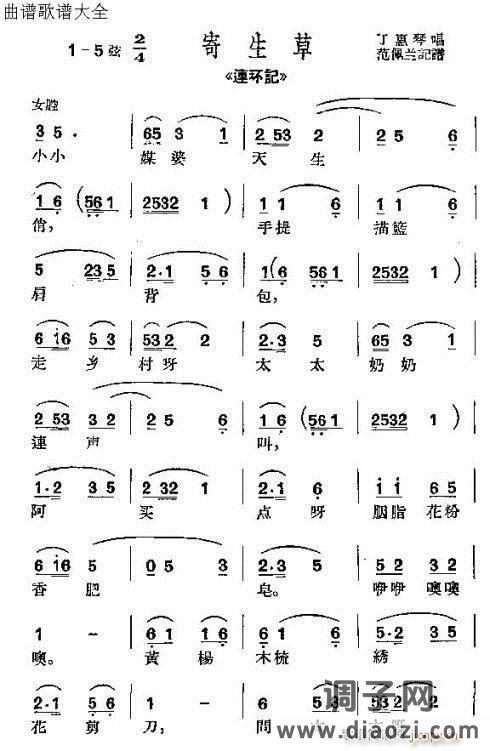 曲谱歌谱大全
1-5弦 2/4 寄生草 丁惠琴唱
范佩兰記譜
《連环記》
女腔
3 5. 65 3 1 2 53 3 2 2 5 6
小小 媒婆 天 生
1 6 (561 2532 1) 1 2 3 5 6
俏, 手提 描籃
5 235 2·1 5 6 1(6 561 2532 1)
肩 背 包,
6 i6 5 53 2 2 2 5 5 65 3 1
走 乡 村呀 太 太 奶奶
2 53 3 2 2 5 6 1 6 (561 2532 1)
連 声 叫,
1·2 3 5 2532 1 2·1 6 i i 6 5
阿 买 点 呀 胭脂 花粉
6 i6 5 0 5 3 2·3 5 5 2 3 2
香 肥 皂。咿咿 噢噢
1 - 6 1 1 6 1 6 3 5·2 3
噢。 黃 楊 木梳 綉
2 3 2 1 2 6 5 3
花 剪 刀, 問
调子网
www.diaozi.com